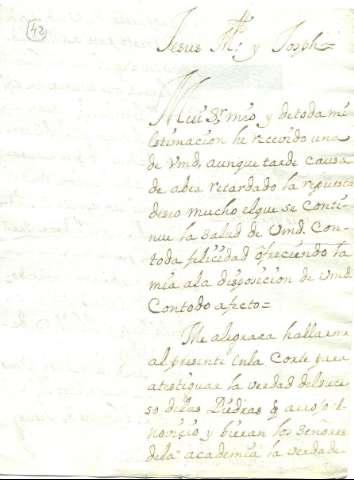 42
Jesus Mª. y Joseph=
Mui Sr. mio y de toda mi
estimacion he recevido una
de Vmd, aunque tarde causa
de aver retardado la repuesta
deseo mucho el que se conti-
nue la salud de Vmd. Con-
toda felicidad ofreciendo la
mia ala disposicion de Vmd.
Contodo afecto=
Me alegrara hallarme
al presente en la Corte para
atestiguar la verdad del suce
so delas Piedras q arrojo
y bieran los Señores
dela academia la verdad